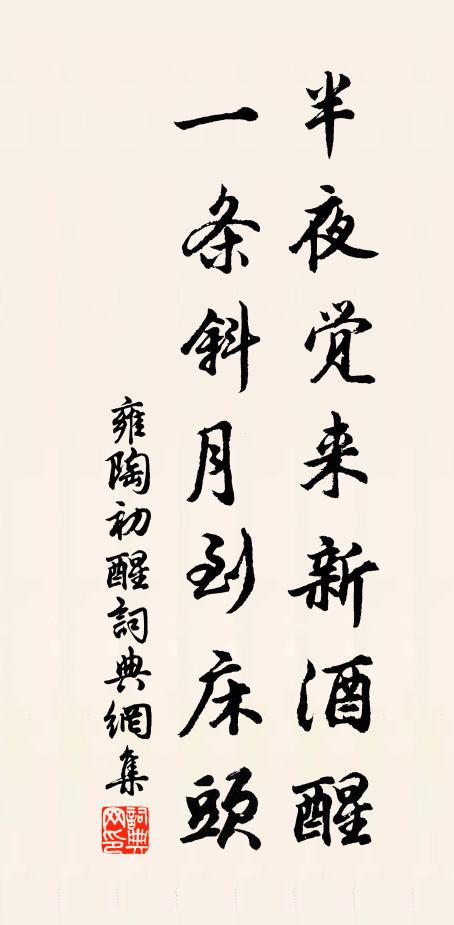 半夜觉来新酒醒
一条斜月到床頭
雍陶初醒詞典網集
詞典網印